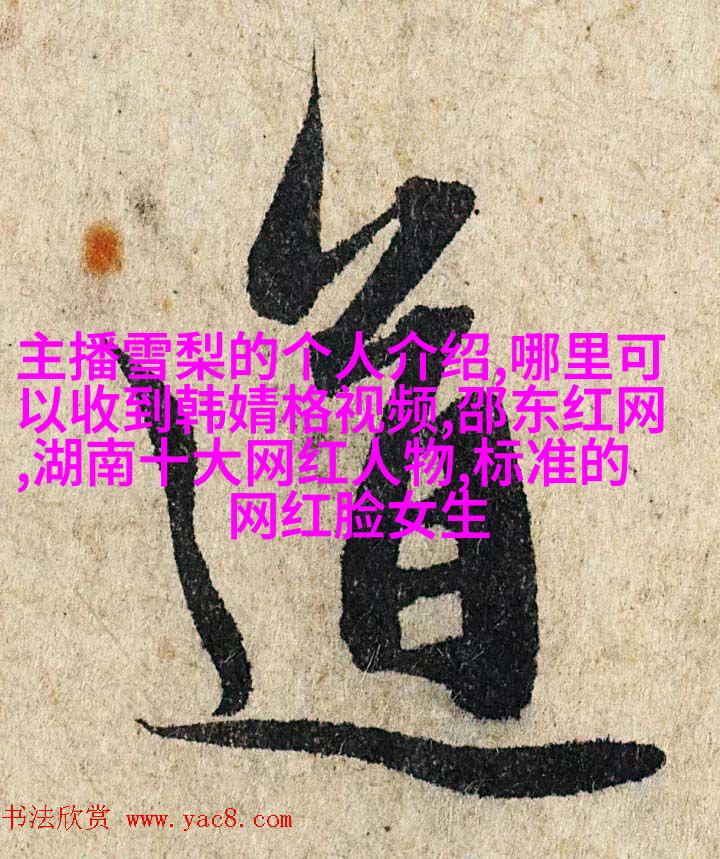 道
主播雪梨的个人介绍,哪里可
以收到韩婧格视频,邵东红网
,湖南十大网红人物,标准的
网红脸女生
书法欣赏 www.yac8.com